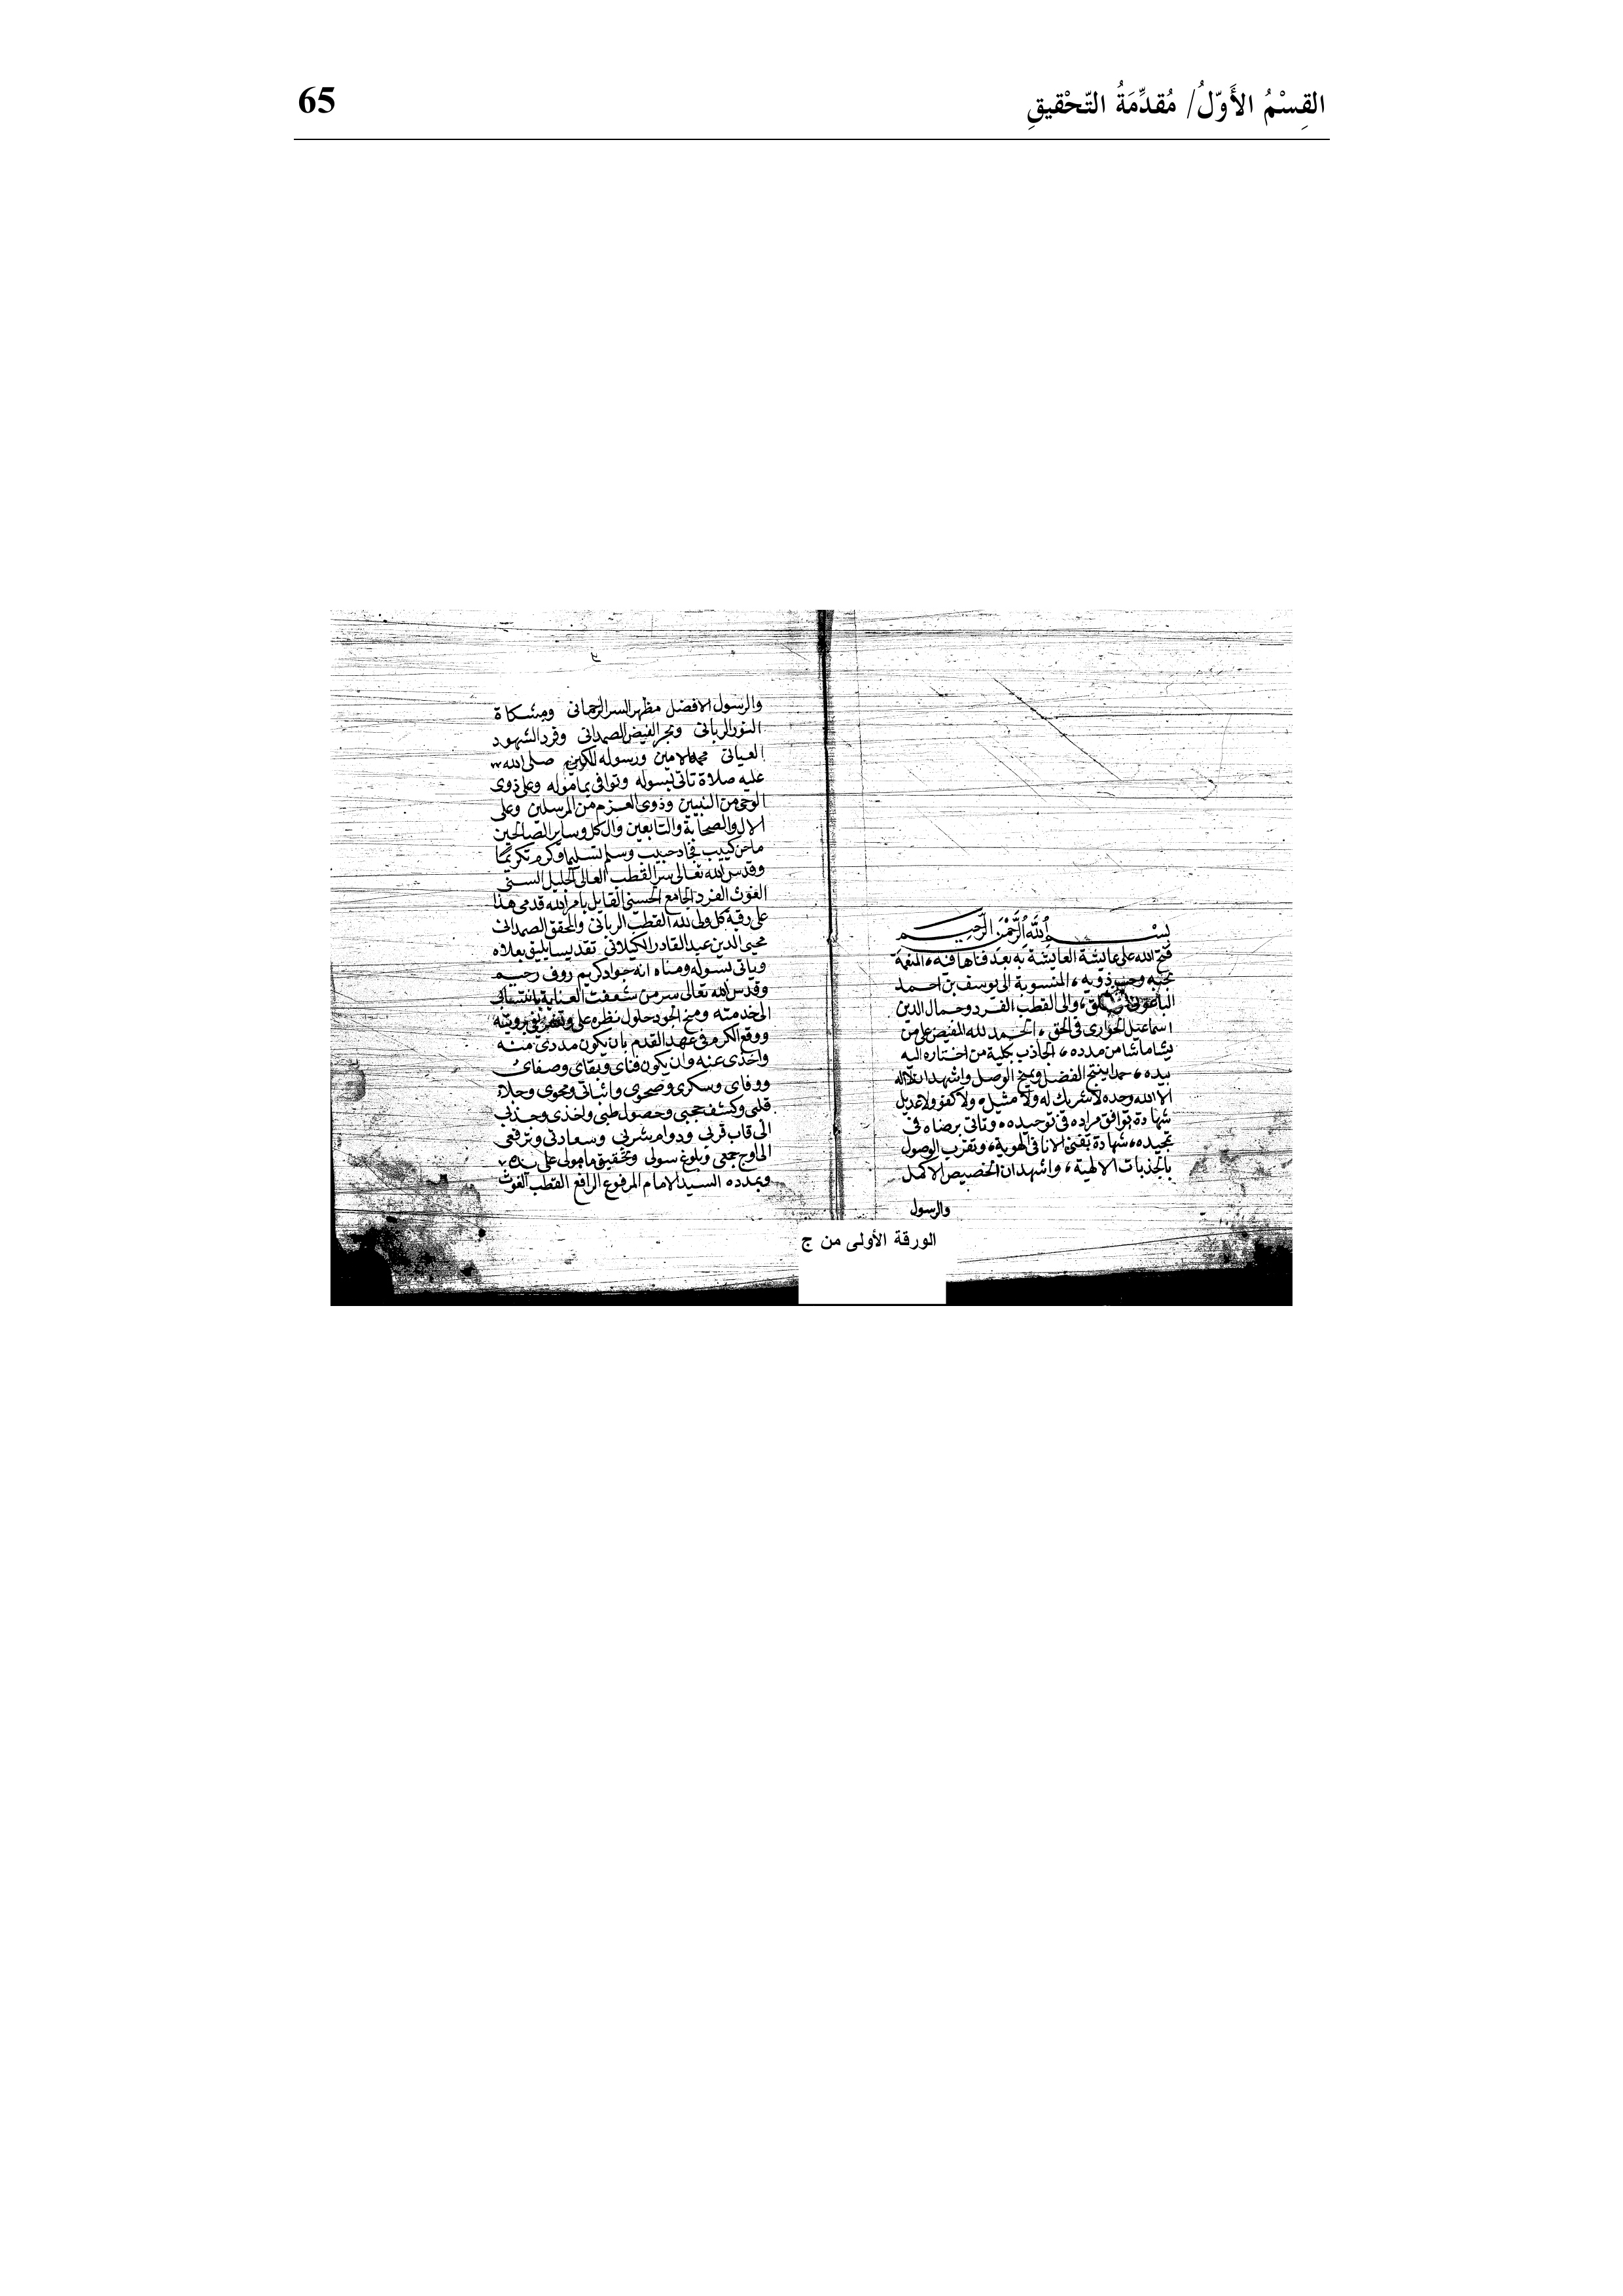 القِسْمُ الأَوّلُ/ مُقدِّمَةُ التّحْقيقِ
65
بسم الله الرحمن الرحيم
فتح الله على عايشة العايشة به بعد فناها فيه، المنعمة
بحبه وحب ذويه، المنسوبة الى يوسف بن احمد
الباعوني، والى القطب الفرد جمال الدين
اسماعيل الحوارى فى الحق، الحمد لله المفيض على من
يشا ماشا من مدده، الجاذب بكلية من اختاره اليه
بيده، حمدا ينتج الفضل ويمنح الوصل واشهد ان لا اله
الا الله وحده لا شريك له ولا مثيل ولا كفو ولا عديل
شهادة توافق مراده فى توحيده، وتاتى برضاه فى
تمجيده، شهادة تفنى الانا فى الهوية، وتقرب الوصول
بالجذبات الالهية، واشهد ان الخصيص الاكمل
والرسول
والرسول الافضل مظهر السر الرحمانى ومشكاة
النور الربانى وبحر الفيض الصمدانى وفرد الشهود
العيانى محمد الامين ورسوله الكريم صلى الله
عليه صلاة تاتى بسوله وتوافى بماموله وعلى ذوى
الوحى من النبيين وذوى العزم من المرسلين وعلى
الال والصحابة والتابعين والكل وساير الصالحين
ماحن كييب فجاد حبيب وسلم تسليما وكرم تكريما
وقدس الله تعالى سر القطب العالى الجليل السنى
الغوث الفرد الجامع الحسنى القايل بامر الله قدمى هذا
على رقبة كل ولى لله القطب الربانى والمحقق الصمدانى
محيى الدين عبد القادر الكيلانى تقديسا يليق بعلاه
وياتى بسوله ومناه انه جواد كريم روف رحيم
وقدس الله تعالى سر من شعفت العناية
الى خدمته ومنح الجود حلول نظره على برويته
ووقع الكرم فى عهد القدم بان يكون مددى منه
واخذى عنه وان يكون فناى وبقاى وصفاى
ووفاى وسكرى وصحوى واثباتى ومحوى وجلاء
قلبى وكشف حجبى وحصول طبى واخذى وجذبى
الى قاب قربى ودوام شربى وسعادتى وترقى
الى اوج جمعى وبلوغ سولى وتحقيق مامولى على يده
وبمدده السيد الامام المرفوع الرافع القطب الغوث
الورقة الأولى من ج